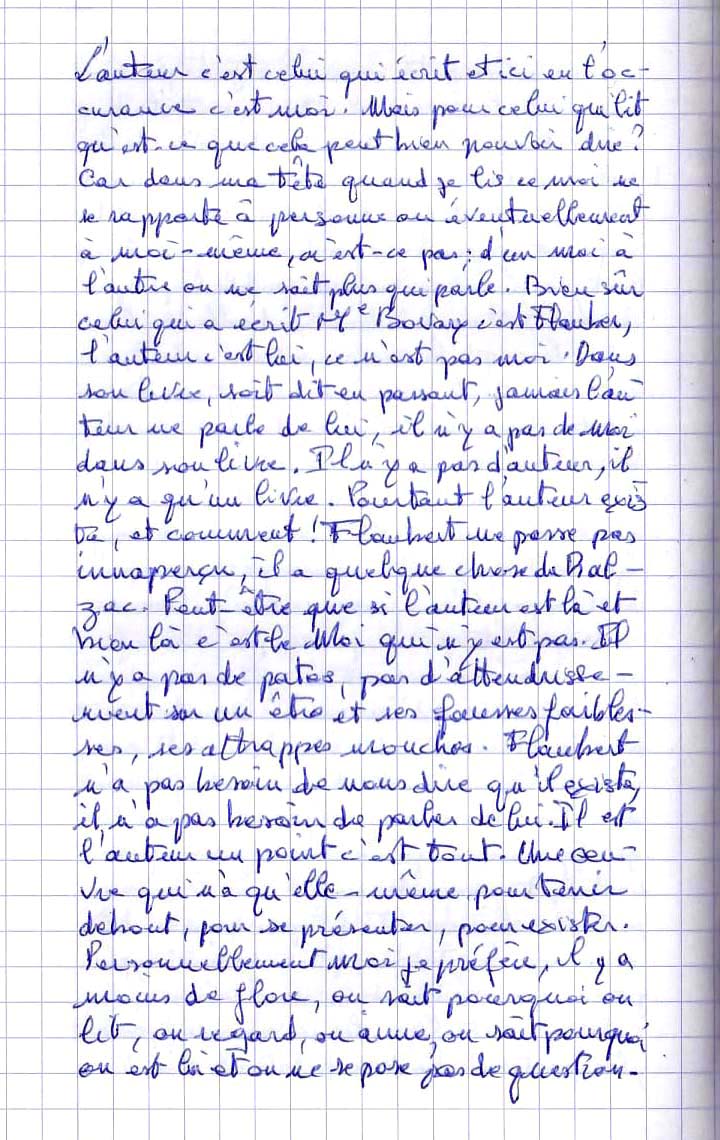 L'auteur c'est celui qui écrit et ici en l'oc-
curance c'est moi. Mais pour celui qui lit
qu'est-ce que cela peut bien vouloir dire?
Car dans ma tête quand je lis ce moi ne
se rapporte à personne ou éventuellement
à moi-même, n'est-ce pas; d'un moi à
l'autre on ne sait plus qui parle. Bien sûr
celui qui a écrit Me Bovary c'est Flauber,
l'auteur c'est lui, ce n'est pas moi. Dans
son livre, soit dit en passant, jamais l'au
teur ne parle de lui, il n'y a pas de moi
dans son livre. Il n'y a pas d'auteur, il
n'y a qu'un livre. Pourtant l'auteur exis
te, et comment! Flaubert ne passe pas
innaperçu, il a quelque chose de Bal-
zac. Peut-être que si l'auteur est là et
bien là c'est le Moi qui n'y est pas. Il
n'y a pas de patos, pas d'attendrisse-
ment sur un être et ses fausses faibles-
ses, ses attrappes mouches. Flaubert
n'a pas besoin de nous dire qu'il existe,
il n'a pas besoin de parler de lui. Il est
l'auteur un point c'est tout. Une oeu-
vre qui n'a qu'elle-même pour tenir
debout, pour se présenter, pour exister.
Personnellement moi je préfère, il y a
moins de flou, on sait pourquoi on
lit, on regard, on aime, on sait pourquoi
on est là et on ne se pose pas de question.